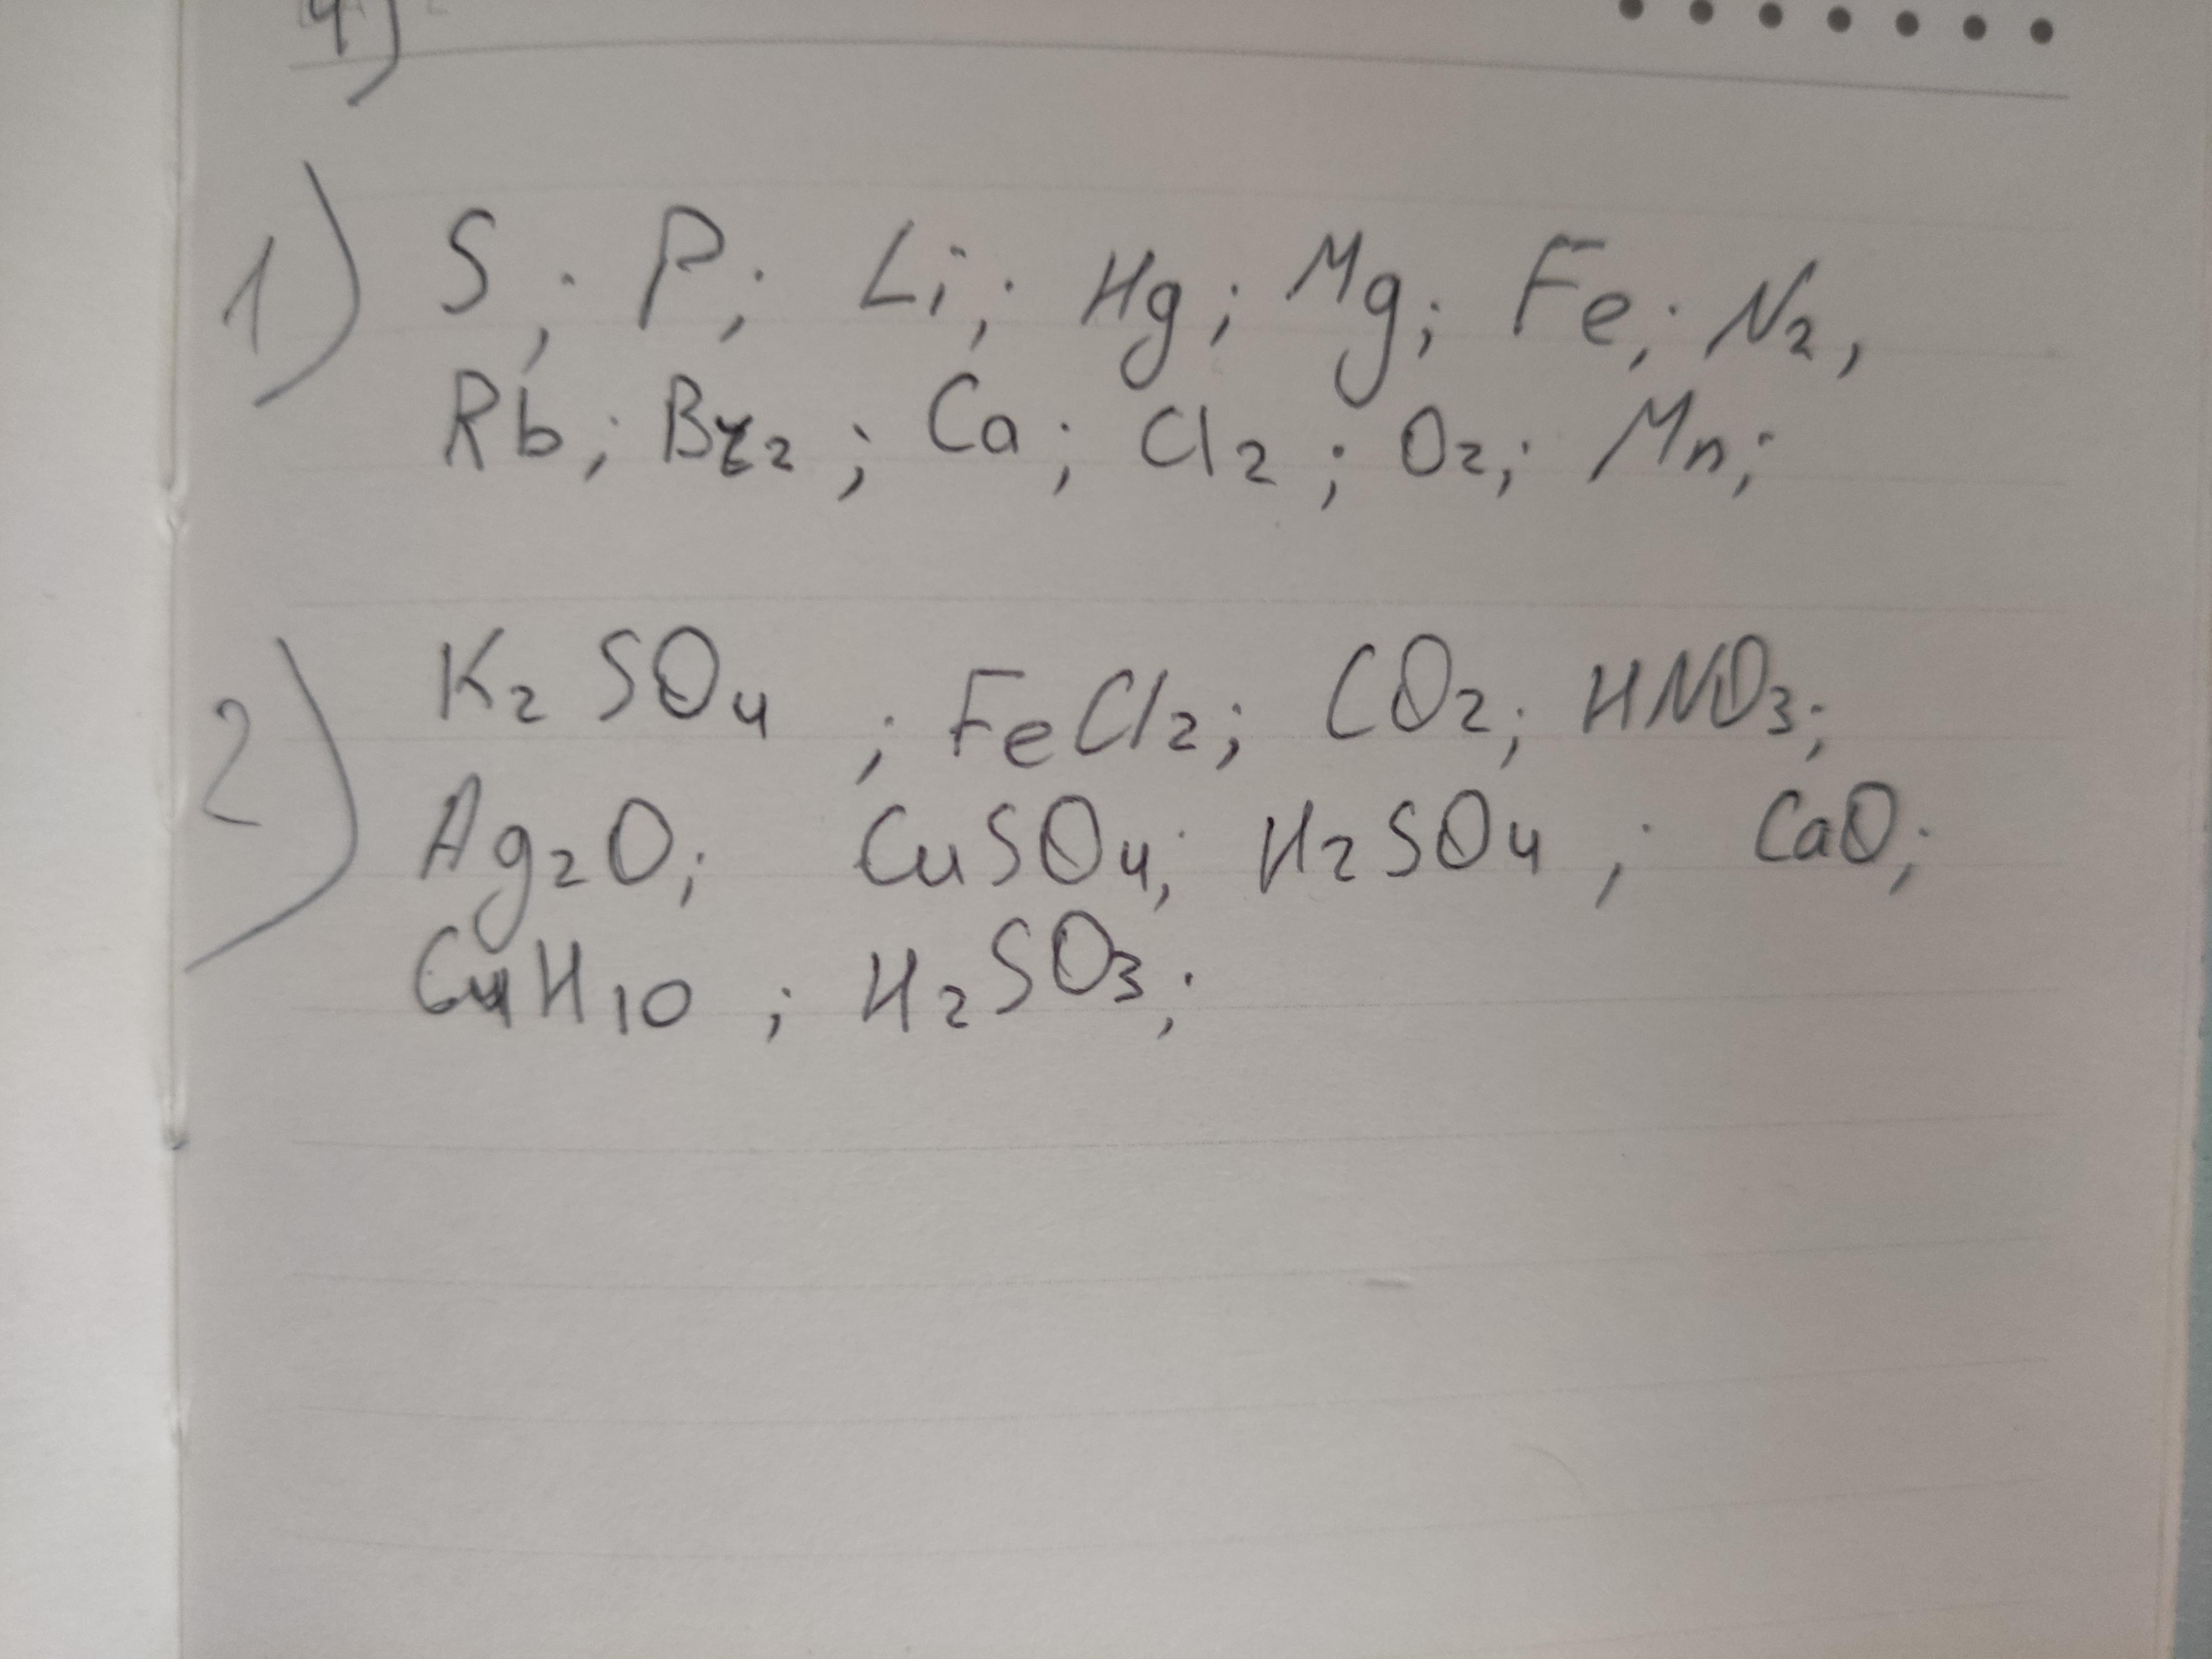 4)
1) S; P; Li; Hg; Mg; Fe; N2,
Rb; Br2; Ca; Cl2; O2; Mn;
2) K2SO4; FeCl2; CO2; HNO3;
Ag2O; CuSO4; H2SO4; CaO;
C4H10; H2SO3;